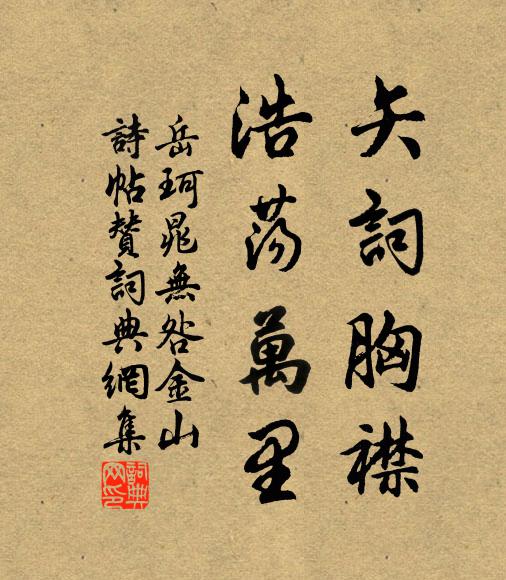 矢詞胸襟
浩蕩萬里
岳珂晁無咎金山
詩帖贊詞典網集
詞典网印